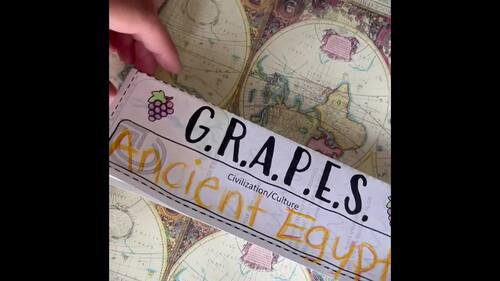 G.R.A.P.E.S.
Civilization/Culture
Ancient Egypt